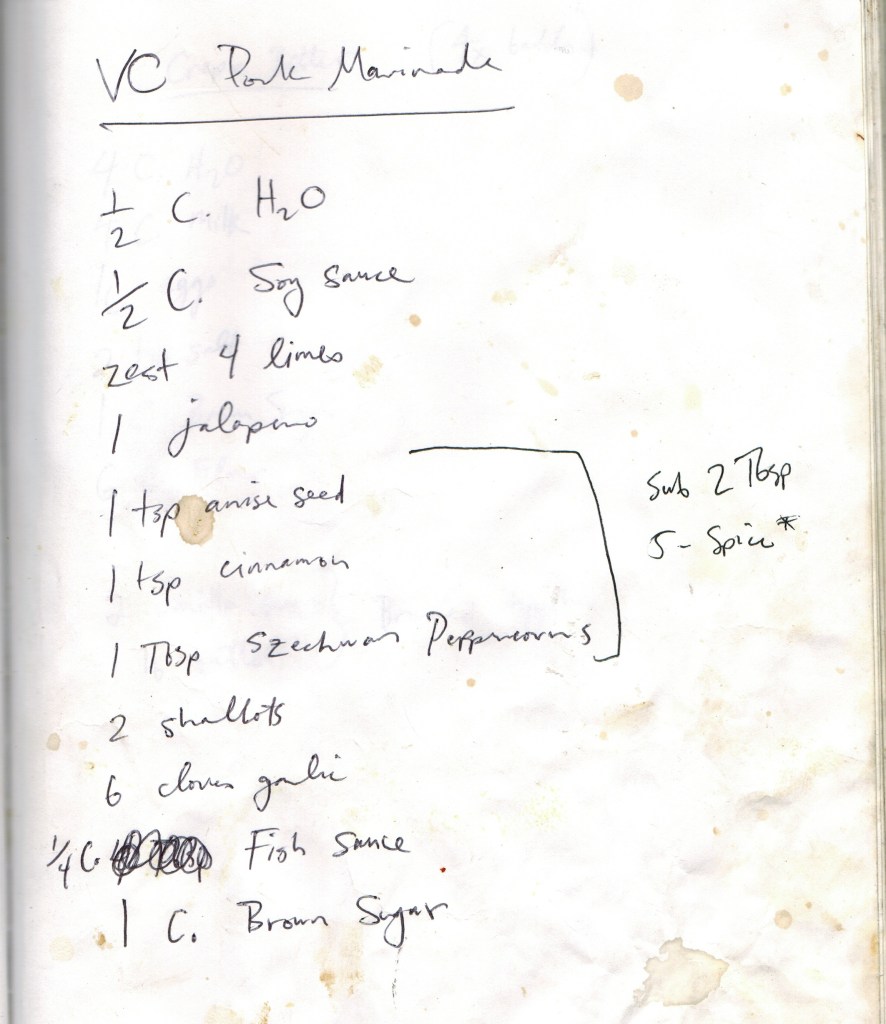 VC Pork Marinade
1/2 C. H₂O
1/2 C. Soy sauce
zest 4 limes
1 jalapeno
1 tsp anise seed
1 tsp cinnamon
1 Tbsp Szechwan Peppercorns
Sub 2 Tbsp
5-Spice*
2 shallots
6 cloves garlic
1/4 C. Fish Sauce
1 C. Brown Sugar